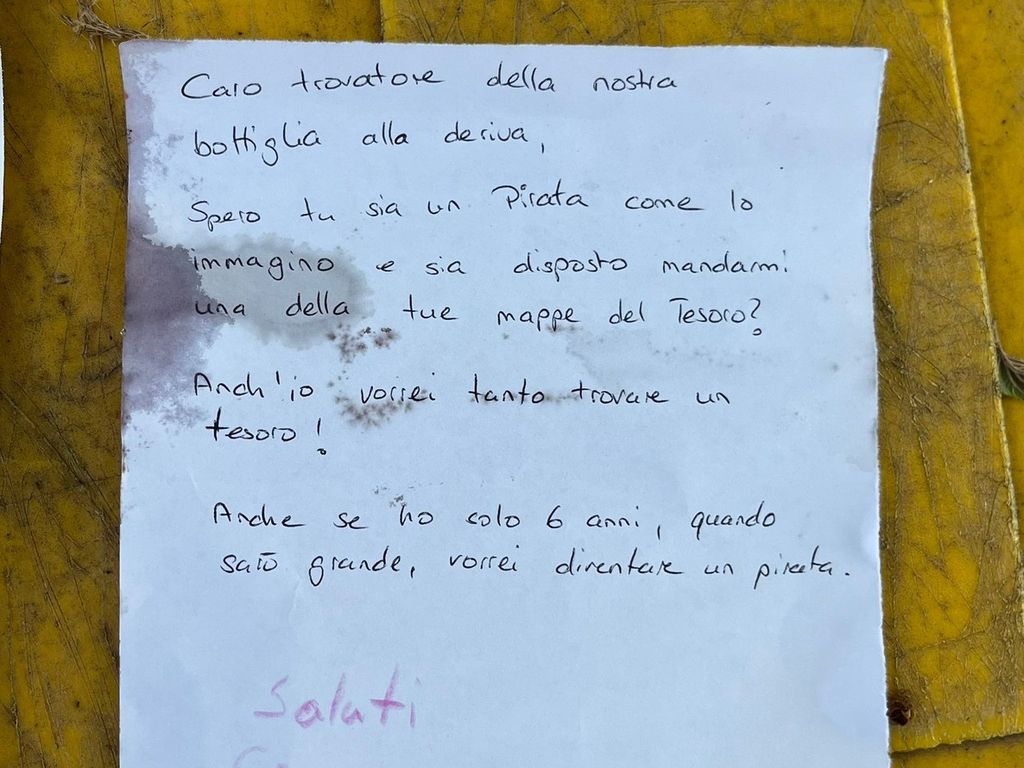 Caro trovatore della nostra
bottiglia alla deriva,
Spero tu sia un Pirata come lo
immagino e sia disposto mandarmi
una della tue mappe del Tesoro?
Anch'io vorrei tanto trovare un
tesoro!
Anche se ho solo 6 anni, quando
sarō grande, vorrei diventare un pirata.
Saluti